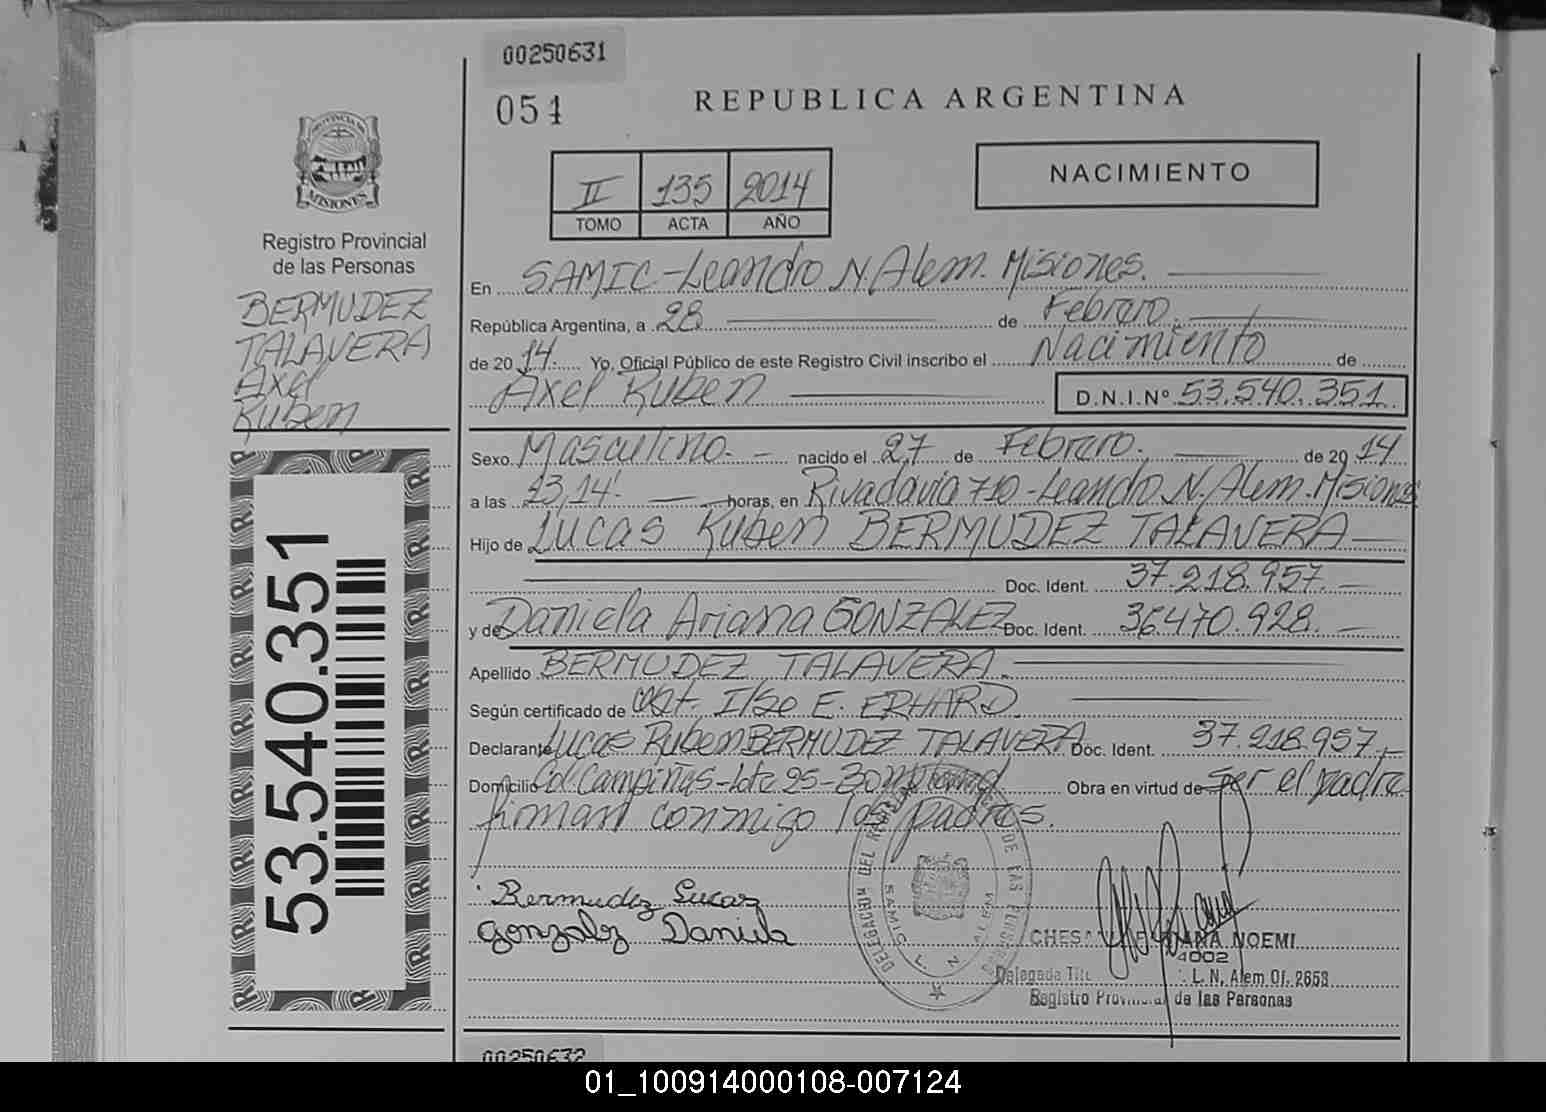 00250631
054
REPUBLICA ARGENTINA
PROVINCIA DE
MISIONES
II 135 2014
TOMO ACTA AÑO
NACIMIENTO
Registro Provincial
de las Personas
BERMUDEZ
TALAVERA
Axel
Ruben
En SAMIC - Leandro N. Alem. Misiones.
República Argentina, a 28 de Febrero
de 2014. Yo, Oficial Público de este Registro Civil inscribo el Nacimiento de
Axel Ruben D.N.I.Nº 53.540.351
Sexo Masculino. - nacido el 27 de Febrero. de 2014
a las 13,14'. horas, en Rivadavia 710 - Leandro N. Alem. Misiones
Hijo de Lucas Ruben BERMUDEZ TALAVERA
Doc. Ident. 37.218.957. -
y de Daniela Ariana GONZALEZ Doc. Ident. 36470.928. -
Apellido BERMUDEZ TALAVERA.
Según certificado de Obst. Ilse E. ERHARD.
Declarante Lucas Ruben BERMUDEZ TALAVERA Doc. Ident. 37.218.957.-
Domicilio Col. Campiñas - Lote 25 - Bonpland Obra en virtud de ser el padre
firman conmigo los padres.
Bermudez Lucas
Gonzalez Daniela
DELEGACION DEL REGISTRO DE LAS PERSONAS
SAMIC L. N. ALEM
NOEMI
4002
Delegada L. N. Alem Of. 2653
Registro Provincial de las Personas
53.540.351
00250632
01_100914000108-007124